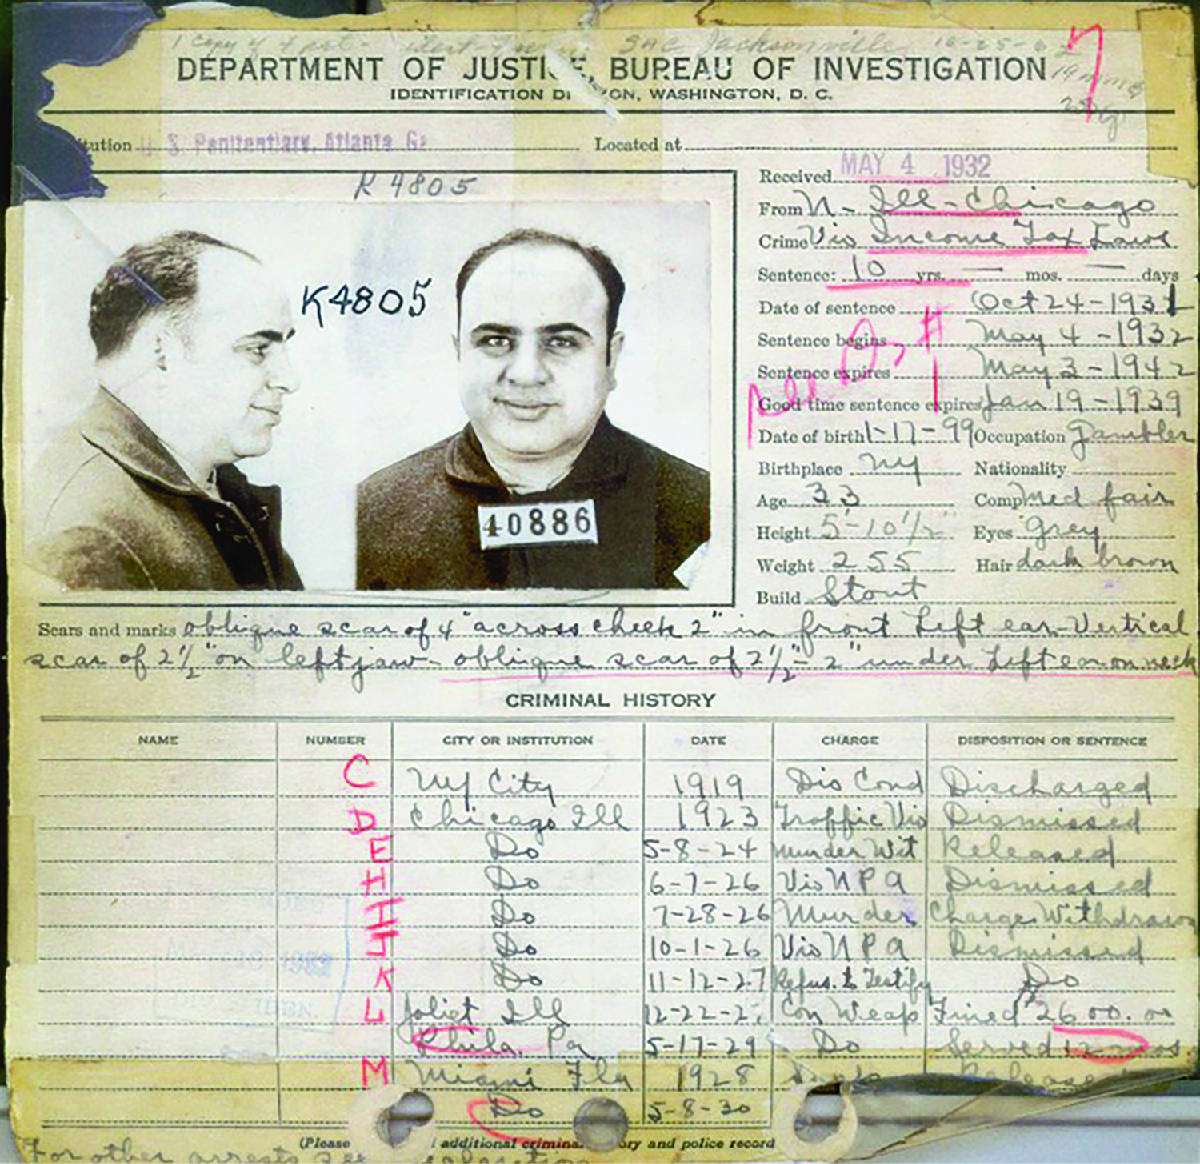 1 Copy of SAC Jacksonville
DEPARTMENT OF JUSTICE, BUREAU OF INVESTIGATION
IDENTIFICATION DI ON, WASHINGTON, D. C.
tution U. S. Penitentiary, Atlanta Ga Located at
K 4805
K4805
40886
Received MAY 4 1932
From N- Ill-Chicago
Crime Vio Income Tax Laws
Sentence: 10 yrs. — mos. — days
Date of sentence Oct 24-1931
Sentence begins May 4-1932
Sentence expires May 3-1942
Good time sentence expires Jan 19-1939
Date of birth 1-17-99 Occupation Gambler
Birthplace NY Nationality
Age 33 Comp Med fair
Height 5-10 1/2" Eyes grey
Weight 255 Hair dark brown
Build Stout
Scars and marks oblique scar of 4" across cheek 2" in front left ear-Vertical
scar of 2 1/2" on left jaw- oblique scar of 2 1/2"- 2" under left ear on neck
CRIMINAL HISTORY
NAME NUMBER CITY OR INSTITUTION DATE CHARGE DISPOSITION OR SENTENCE
C NY City 1919 Dis Cond Discharged
D Chicago Ill 1923 Traffic Vio Dismissed
E Do 5-8-24 Murder Wit Released
H Do 6-7-26 Vio NPA Dismissed
I Do 7-28-26 Murder Charge Withdrawn
J Do 10-1-26 Vio NPA Dismissed
K Do 11-12-27 Refus. to Testify Do
L Joliet Ill 12-22-2 Con Weap Fined 2600.00
Phila. Pa 5-17-29 Do Served 12 mos
M Miami Fla 1928 Released
Do 5-8-30
(Please additional criminal ory and police record
For other arrests see